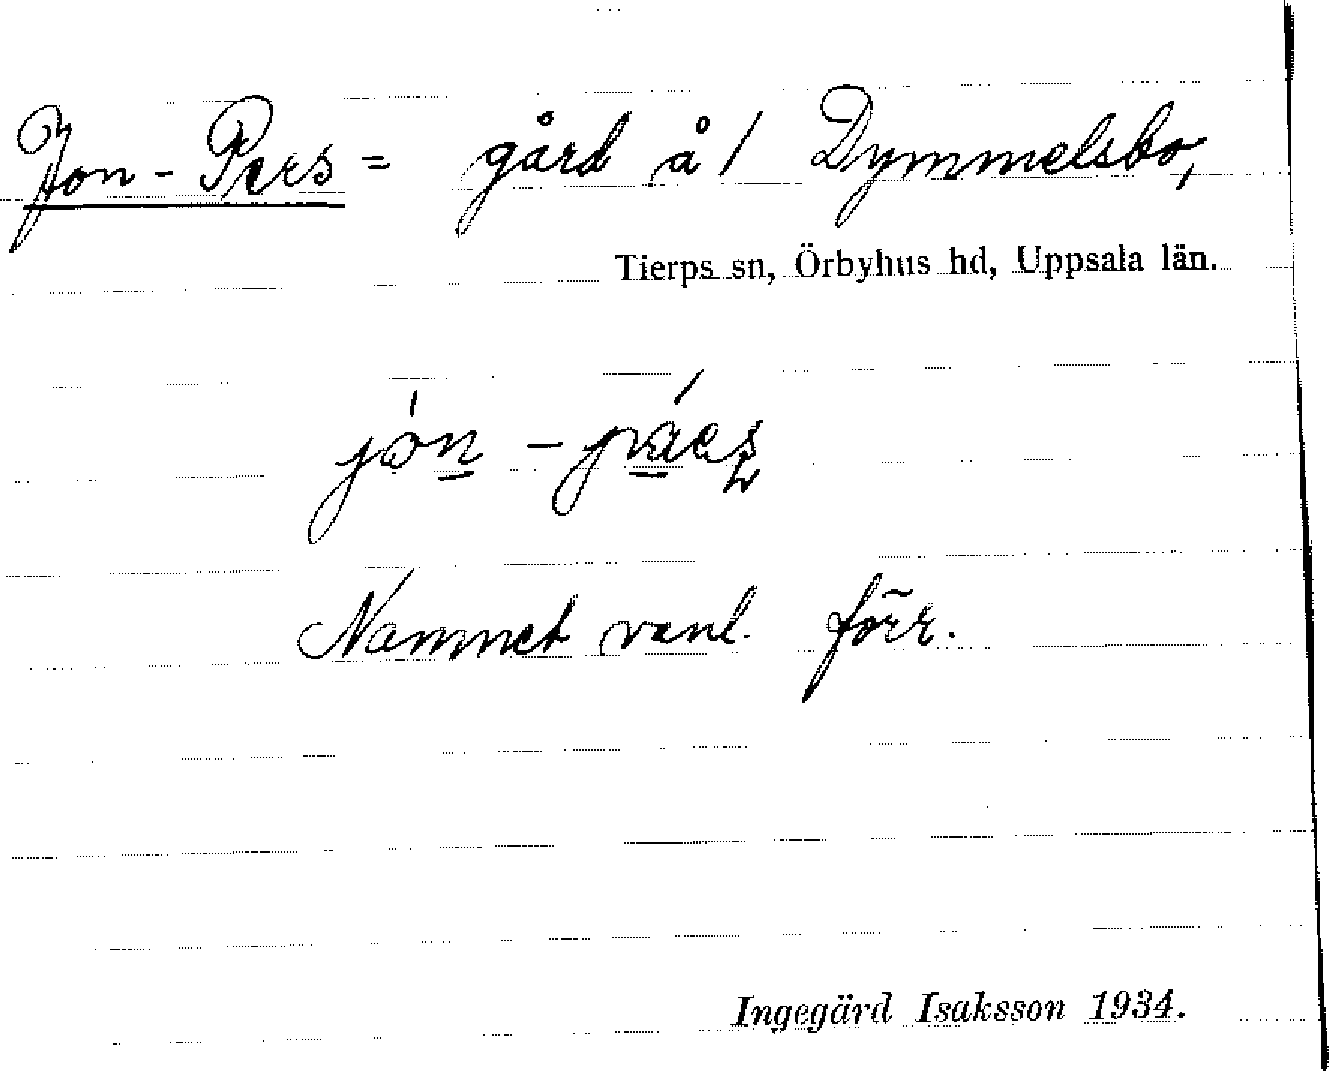 Jon-Pers = gård å / Dymmelsbo,
Tierps sn, Örbyhus hd, Uppsala län.
Namnet vanl. förr.
Ingegärd Isaksson 1934.